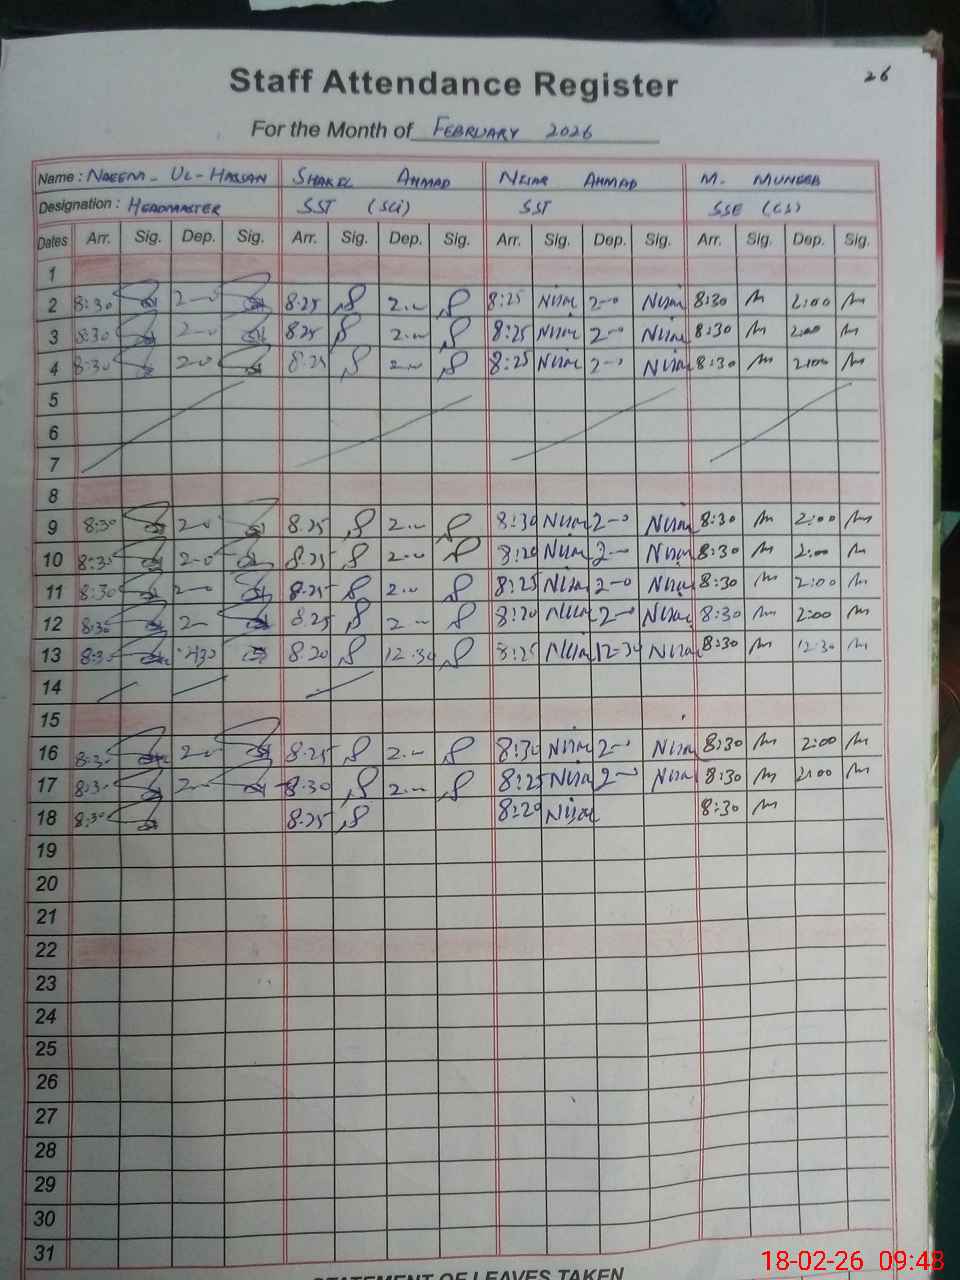 26
Staff Attendance Register
For the Month of FEBRUARY 2026
Name : NAEEM-UL-HASSAN SHAKEEL AHMAD NISAR AHMAD M. MUNEEB
Designation : HEADMASTER SST (SCi) SST SSE (CS)
Dates Arr. Sig. Dep. Sig. Arr. Sig. Dep. Sig. Arr. Sig. Dep. Sig. Arr. Sig. Dep. Sig.
1
2 8:30 2-0 8.25 2.00 8:25 Nisar 2-0 Nisar 8:30 2:00
3 8:30 2-0 8.25 2.00 8:25 Nisar 2-0 Nisar 8:30 2:00
4 8:30 2-0 8.25 2.00 8:25 Nisar 2-0 Nisar 8:30 2:00
5
6
7
8
9 8:30 2-0 8.25 2.00 8:30 Nisar 2-0 Nisar 8:30 2:00
10 8:30 2-0 8.25 2.00 8:20 Nisar 2-0 Nisar 8:30 2:00
11 8:30 2-0 8.25 2.00 8:25 Nisar 2-0 Nisar 8:30 2:00
12 8:30 2- 8.25 2.00 8:20 Nisar 2-0 Nisar 8:30 2:00
13 8:30 8.20 12.30 8:25 Nisar 12-30 Nisar 8:30 12:30
14
15
16 8:30 2-0 8.25 2.00 8:30 Nisar 2-0 Nisar 8:30 2:00
17 8:30 2-0 8.30 2.00 8:25 Nisar 2-0 Nisar 8:30 2:00
18 8:30 8.25 8:20 Nisar 8:30
19
20
21
22
23
24
25
26
27
28
29
30
31
STATEMENT OF LEAVES TAKEN
18-02-26 09:48